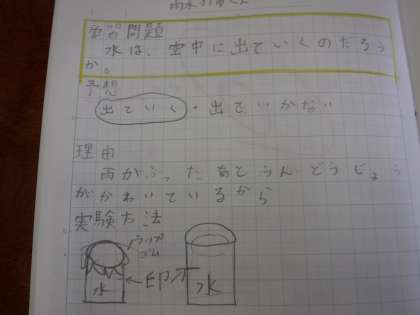 学習問題
水は、空中に出ていくのだろう
か。
予想
出ていく・出ていかない
理由
雨がふったあとうんどうじょう
がかわいているから
実験方法
ラップ
ゴム
水
印
水